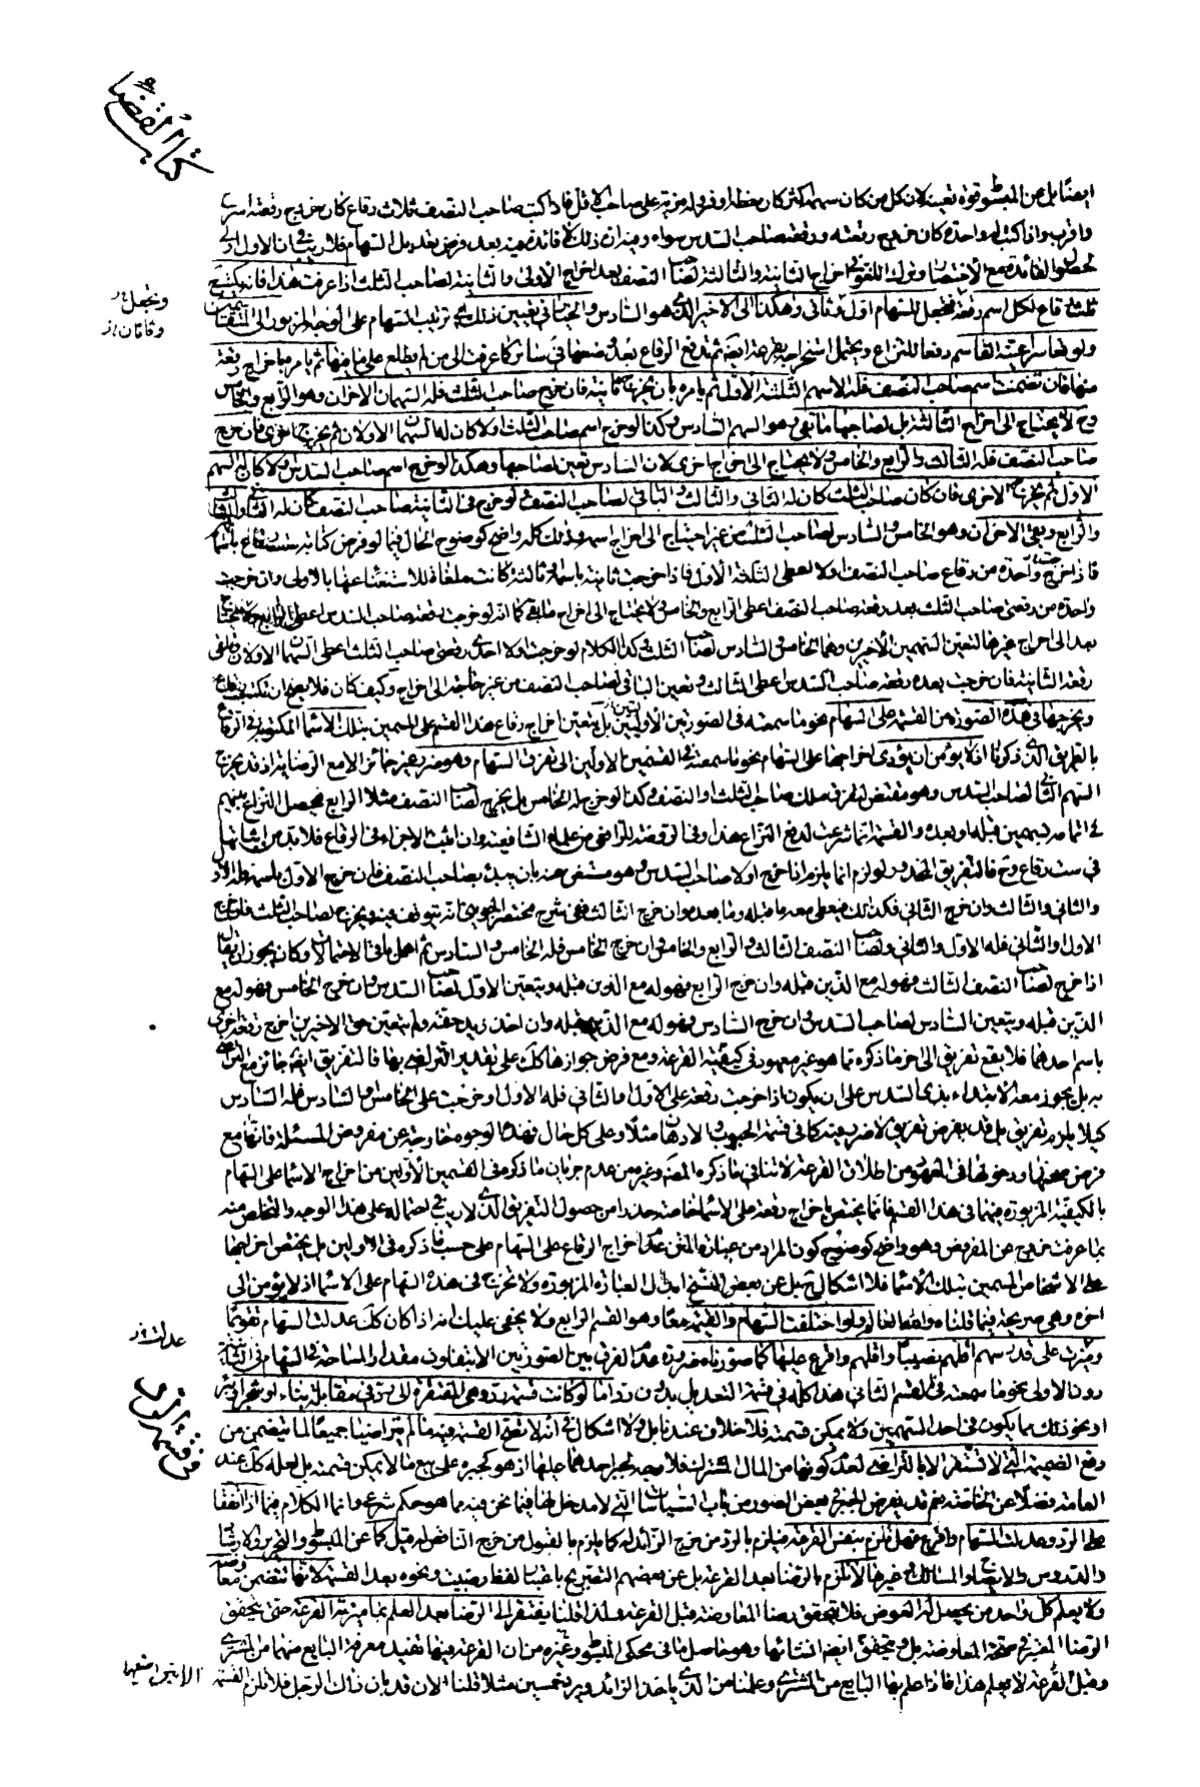 كتاب القضاء
ايضا بل عن المبسوط قوة تعينه لان كل من كان سهمه اكثر كان حظه اوفر وله مزية على صاحب الاقل فاذا كتب صاحب النصف ثلاث رقاع كان خروج رقعته اسرع
واقرب واذا كتب له واحدة كان خروج رقعته ورقعة صاحب السدس سواء وفيه ان ذلك لا فائدة فيه بعد فرض تعديل السهام فلا ريب في ان الاول اولى
لحصول الفائدة مع الاختصار وترك اللغو في اخراج الثانية والثالثة لصاحب النصف بعد اخراج الاولى والثانية لصاحب الثلث اذا عرفت هذا فانه يكتب
ثلث رقاع لكل اسم رقعة ويجعل للسهام اول وثاني وهكذا الى الاخير الذي هو السادس والخيار في تعيين ذلك في ترتيب السهام على الوجه المزبور الى المتقاسمين
ولو تعاسرا عينه القاسم دفعا للنزاع ويحتمل استخراجه بقرعة ايضا ثم تدفع الرقاع بعد وضعها في ساتر كما عرفت الى من لم يطلع على ما فيها ثم يامر باخراج رقعة
منها فان تضمنت اسم صاحب النصف فله الاسهم الثلثة الاول ثم يامره بان يخرج ثانية فان خرج صاحب الثلث فله السهمان الاخران وهو الرابع والخامس
وح لا يحتاج الى اخراج الثالثة بل لصاحبها ما بقي وهو السهم السادس وكذا لو خرج اسم صاحب الثلث اولا كان له السهمان الاولان ثم يخرج اخرى فان خرج
صاحب النصف فله الثالث والرابع والخامس ولا يحتاج الى اخراج اخرى لان السادس تعين لصاحبها وهكذا لو خرج اسم صاحب السدس اولا كان له السهم
الاول ثم يخرج الاخرى فان كان صاحب الثلث كان له الثاني والثالث والباقي لصاحب النصف ولو خرج في الثانية صاحب النصف كان له الثاني والثالث
والرابع وبقي الاخران وهو الخامس والسادس لصاحب الثلث من غير احتياج الى اخراج اسمه وذلك كله واضح كوضوح الحال فيما لو فرض كتابة ست رقاع باسماء
فاذا خرجت واحدة من رقاع صاحب النصف اولا يعطى الثلثة الاول فاذا خرجت ثانية باسمه او ثالثة كانت ملغاة للاستغناء عنها بالاولى وان خرجت
واحدة من رقعتي صاحب الثلث بعد رقعة صاحب النصف اعطي الرابع والخامس ولا يحتاج الى اخراج ما بقي كما انه لو خرجت رقعة صاحب السدس اعطي الرابع ولا يحتاج
بعد الى اخراج غيرها لتعين السهمين الاخيرين وهما الخامس والسادس لصاحب الثلث وكذا الكلام لو خرجت اولا احدى رقعتي صاحب الثلث اعطي السهمان الاولان وتلغى
رقعته الثانية فان خرجت بعده رقعة صاحب السدس اعطي الثالث وتعين الباقي لصاحب النصف من غير حاجة الى اخراج وكيف كان فلا يصح ان تكتب رقاع
ويخرجها في هذه الصورة من القسمة على السهام نحو ما سمعته في الصورتين الاوليين بل يتعين اخراج رقاع هذا القسم على المسمين بتلك الاسماء المكتوبة في الرقاع
بالطريق الذي ذكرنا اذ لا يؤمن ان يؤدي اخراجها على السهام نحو ما سمعته في القسمين الاولين الى تفرق السهام وهو ضرر غير جائز الا مع الرضا به اذ قد يخرج
السهم الثاني لصاحب السدس وهو مقتض لتفرق ملك صاحب الثلث او النصف وكذا لو خرج له الخامس بل يخرج لصاحب النصف مثلا الرابع فيحصل النزاع بينهم
في اتمامه بسهمين قبله او بعده والقسمة انما شرعت لدفع النزاع هذا
في ست رقاع وح فالتفريق المحذور لو لزم انما يلزم اذا خرج اولا صاحب السدس وهو مستغنى عنه بان يبدء بصاحب النصف فان خرج الاول باسمه فله الاول
والثاني والثالث وان خرج الثاني فكذلك فيعطى معه ما قبله وما بعده وان خرج الثالث ففي شرح مختصر الجويني انه يتوقف فيه ويخرج لصاحب الثلث فان خرج
الاول او الثاني فله الاول والثاني ولصاحب النصف الثالث والرابع والخامس وان خرج الخامس فله الخامس والسادس ثم اهمل باقي الاحتمالات وكان يجوز ان يقال
اذا خرج لصاحب النصف الثالث فهو له مع الذين قبله وان خرج الرابع فهو له مع الذين قبله ويتعين الاول لصاحب السدس وان خرج الخامس فهو له مع
الذين قبله ويتعين السادس لصاحب السدس وان خرج السادس فهو له مع الذين قبله وان اخذ زيد حقه ولم يتعين حق الاخرين اخرج رقعة اخرى
باسم احدهما فلا يقع تفريق الى اخر ما ذكره مما هو غير معهود في كيفية القرعة ومع فرض جوازها كذلك على تقدير التراضي بها فالتفريق ايضا جائز مع التراضي
به بل يجوز معه الابتداء بذي السدس على ان يكون اذا خرجت رقعته على الاول او الثاني فله الاول وخرجت على الخامس او السادس فله السادس
كيلا يلزم تفريق بل قد يفرض تفريق لا ضرر فيه كما في قسمة الحبوب والادهان مثلا وعلى كل حال فهذه الوجوه خارجة عن مفروض المسئلة فانها مع
فرض صحتها ودخولها في المعهود من اطلاق القرعة لا تنافي ما ذكره المصنف وغيره من عدم جريان ما ذكره في القسمين الاولين من اخراج الاسماء على السهام
بالكيفية المزبورة فيهما في هذا القسم فانما يختص باخراج رقعته على الاسماء خاصة حذرا من حصول التفريق الذي لا ريب في احتماله على هذا الوجه والتخلص منه
بما عرفت خروج عن المفروض وهو واضح كوضوح كون المراد من عبارة المتن عدم اخراج الرقاع على السهام على حسب ما ذكره في الاولين بل يختص اخراجها
على الاشخاص المسمين بتلك الاسماء فلا اشكال بل عن بعض النسخ ابدال العبارة المزبورة ولا تخرج في هذه السهام على الاسماء اذ لا يؤمن الى
اخره وهي صريحة فيما قلناه والله العالم ولو اختلفت السهام والقيمة معا وهو القسم الرابع ولا يخفى عليك انه اذا كان كذلك عدلت السهام تقويما
وميزت على قدر سهم اقلهم نصيبا واقرع عليها كما صورناه ضرورة عدم الفرق بين الصورتين الا بتفاوت مقدار المساحة في السهام في الثانية
دون الاولى نحو ما سمعته في القسم الثاني هذا كله في قسمة التعديل بدون رد اما لو كانت قسمة رد وهي المفتقرة الى رد في مقابلة بناء او شجر او بئر
او نحو ذلك مما يكون في احد السهمين ولا يمكن قسمته فلا خلاف عندنا بل ولا اشكال في انه لا تصح القسمة فيه ما لم يتراضيا جميعا لما يتضمن من
دفع الضميمة التي لا تستقر الا بالتراضي لعدم كونها من المال المشترك فلا معنى لجبر احدهما عليها اذ هو كجبره على بيع ما لا يمكن قسمته بل لعله كذلك عند
العامة فضلا عن الخاصة نعم قد يفرض الجبر في بعض الصور من باب السياسات التي لا مدخل لها فيما نحن فيه مما هو حكم شرعي وانما الكلام فيما اذا اتفقا
على الرد وعدلت السهام واقرع فهل تلزم بنفس القرعة فيلزم بالرد من خرج الزائد له كما يلزم بالقبول من خرج الناقص له قيل كما عن المبسوط والتحرير والارشاد
والدروس والايضاح والمسالك وغيرها لا تلزم بل الرضا بعد القرعة بل عن بعضهم التصريح باعتبار لفظ رضيت ونحوه بعد القسمة لانها تتضمن معاوضة
ولا يعلم كل واحد من يحصل له العوض فلا يتحقق رضا المعاوضة قبل القرعة ولذا قلنا يفتقر الى الرضا بعد العلم بما ميزته القرعة حتى يتحقق
الرضا المعتبر في صحة المعاوضة بل وفي تحقق ايضا انشائها وهو حاصل ما في محكي المبسوط وغيره من ان القرعة فيها تفيد معرفة البايع منهما من المشتري
وقبل القرعة لا يعلم هذا فاذا علم بها البايع من المشتري وعلمنا من الذي ياخذ الزائد ويرد خمسين مثلا قلنا الان قد بان ذلك الرجل فلا تلزم القسمة
ويجعل
وقاقان
عدلت
في قسمة الرد
الا بتراضيهما